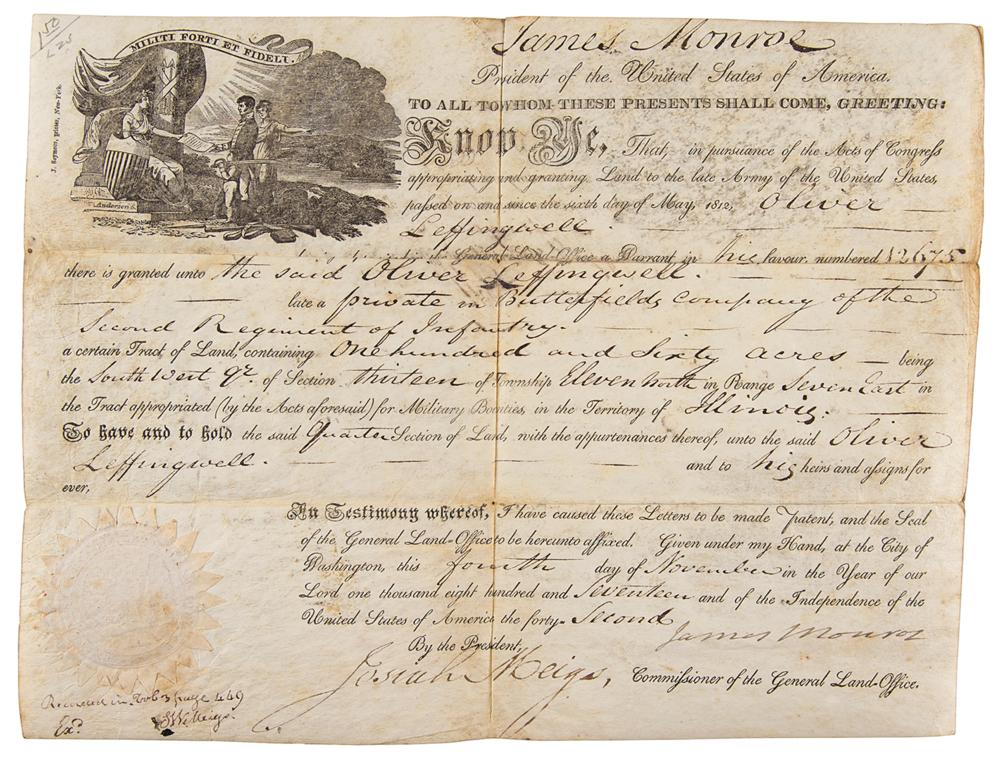 1 50
L 25
MILITI FORTI ET FIDELI.
J. Seymour, printer, New-York.
Anderson S.
James Monroe
Prident of the United States of America.
TO ALL TO WHOM THESE PRESENTS SHALL COME, GREETING:
Know Ye, That, in pursuance of the Acts of Congress
appropriating and granting Land to the late Army of the United States,
passed on and since the sixth day of May, 1812, Oliver
Leffingwell.
the General Land-Office a Warrant in his favour, numbered 12675
there is granted unto the said Oliver Leffingwell.
late a private in Butterfields company of the
Second Regiment of Infantry.
a certain Tract of Land, containing One hundred and Sixty acres — being
the South West qr. of Section thirteen of Township Eleven North in Range Seven East in
the Tract appropriated (by the Acts aforesaid) for Military Bounties, in the Territory of Illinois.
To have and to hold the said Quarter Section of Land, with the appurtenances thereof, unto the said Oliver
Leffingwell. and to his heirs and assigns for
ever,
In Testimony whereof, I have caused these Letters to be made Patent, and the Seal
of the General Land-Office to be hereunto affixed. Given under my Hand, at the City of
Washington, this fourth day of November in the Year of our
Lord one thousand eight hundred and Seventeen and of the Independence of the
United States of America the forty-Second
James Monroe
By the President,
Josiah Meigs, Commissioner of the General Land-Office.
Recorded in Vol. 3 page 449
Exd. Meigs.